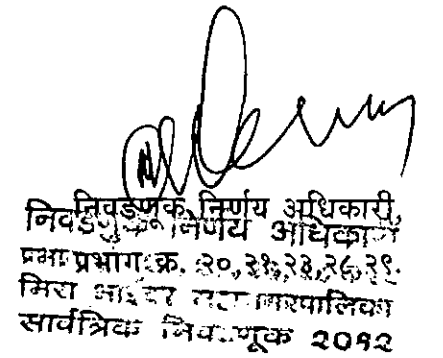 निवडणूक निर्णय अधिकारी,
निवडणुक निर्णय अधिकारी
प्रभाग क्र. २०,२१,२३,२८,२९.
मिरा भाईंदर महानगरपालिका
सार्वत्रिक निवडणूक २०१२